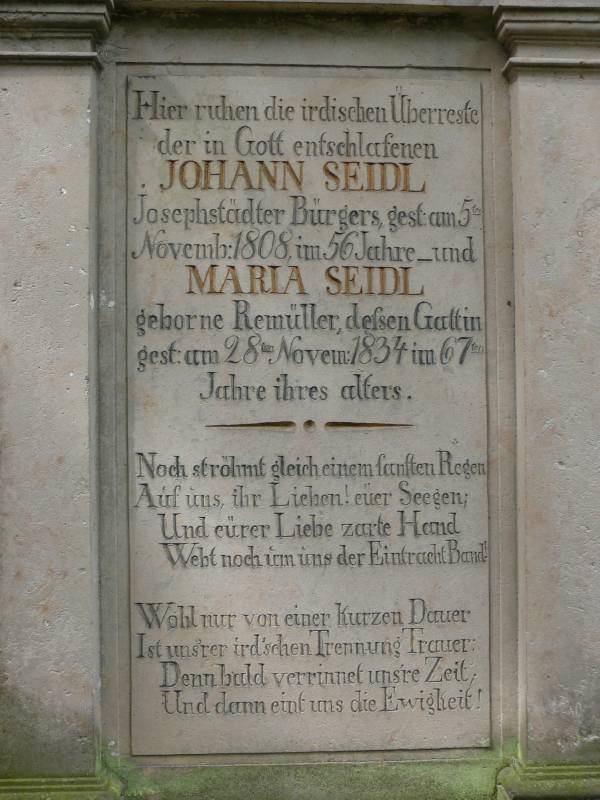 Hier ruhen die irdischen Überreste
der in Gott entschlafenen
JOHANN SEIDL
Josephstädter Bürgers, gest: am 5ten
Novemb: 1808, im 56 Jahre_und
MARIA SEIDL
geborne Remüller, deſsen Gattin
gest: am 28ten Novem: 1834 im 67ten
Jahre ihres alters.
Noch ströhmt gleich einem sanften Regen
Auf uns, ihr Lieben! euer Seegen;
Und eurer Liebe zarte Hand
Webt noch um uns der Eintracht Band!
Wohl nur von einer kurzen Dauer
Ist uns'rer ird'schen Trennung Trauer:
Denn bald verrinnet uns're Zeit,
Und dann eint uns die Ewigkeit!